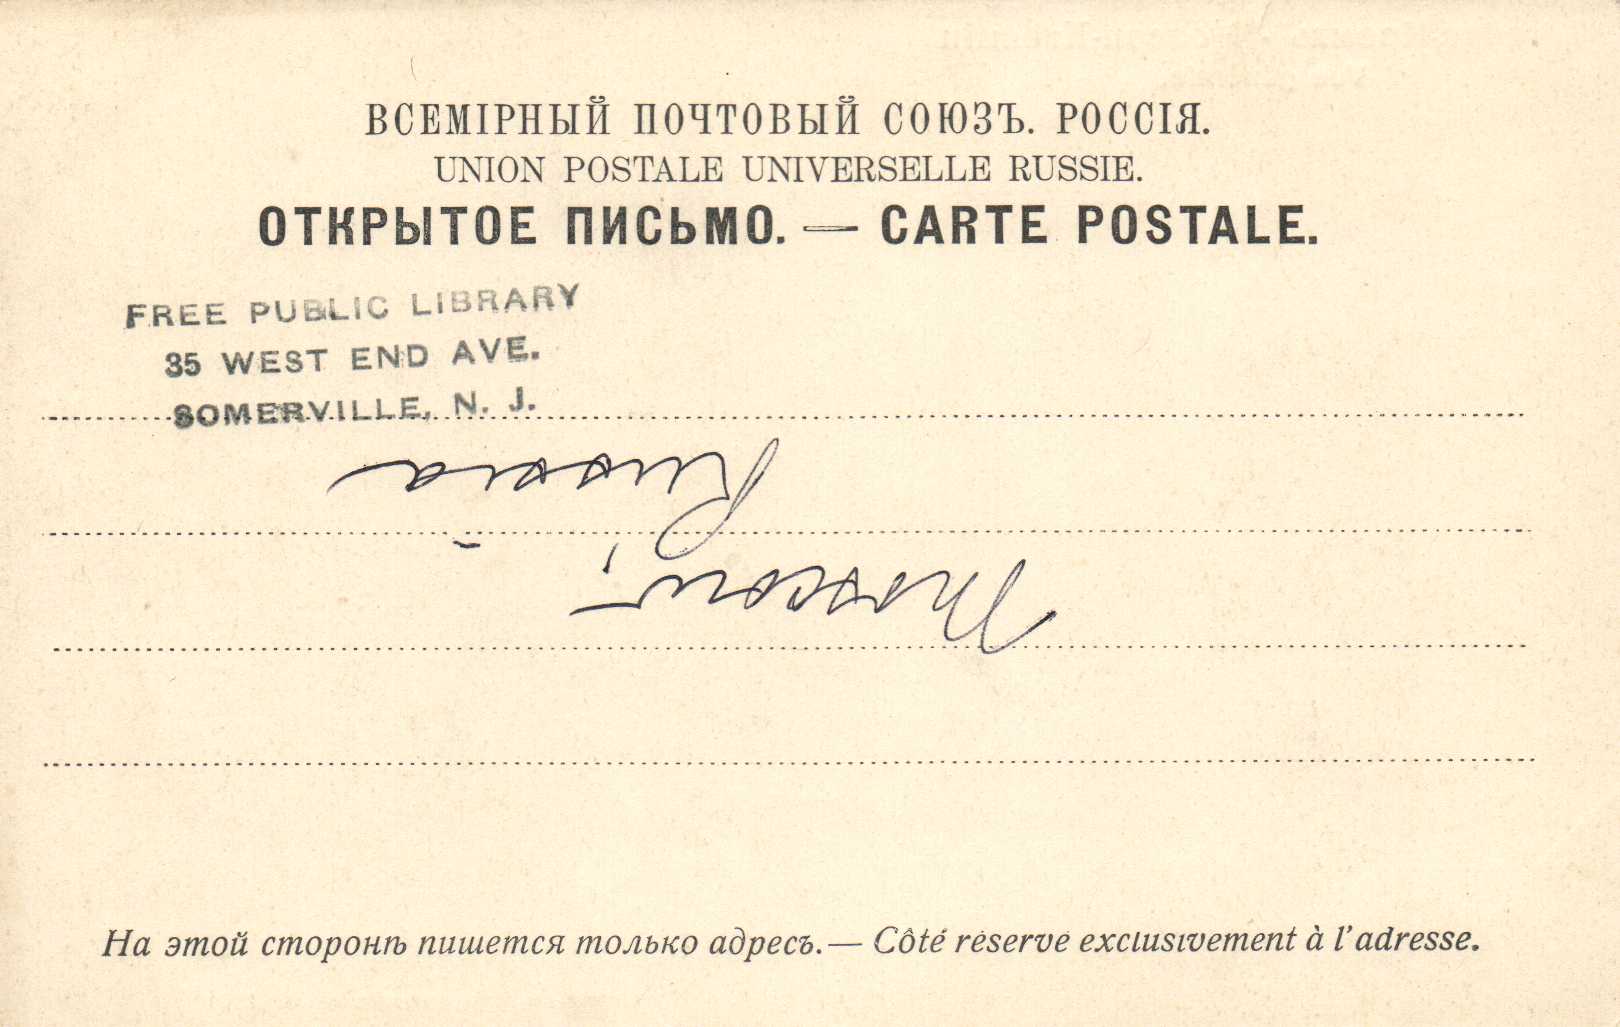 ВСЕМІРНЫЙ ПОЧТОВЫЙ СОЮЗЪ. РОССІЯ.
UNION POSTALE UNIVERSELLE RUSSIE.
ОТКРЫТОЕ ПИСЬМО. — CARTE POSTALE.
FREE PUBLIC LIBRARY
35 WEST END AVE.
SOMERVILLE, N. J.
Moscow,
Russia
На этой сторонѣ пишется только адресъ. — Côté réservé exclusivement à l'adresse.